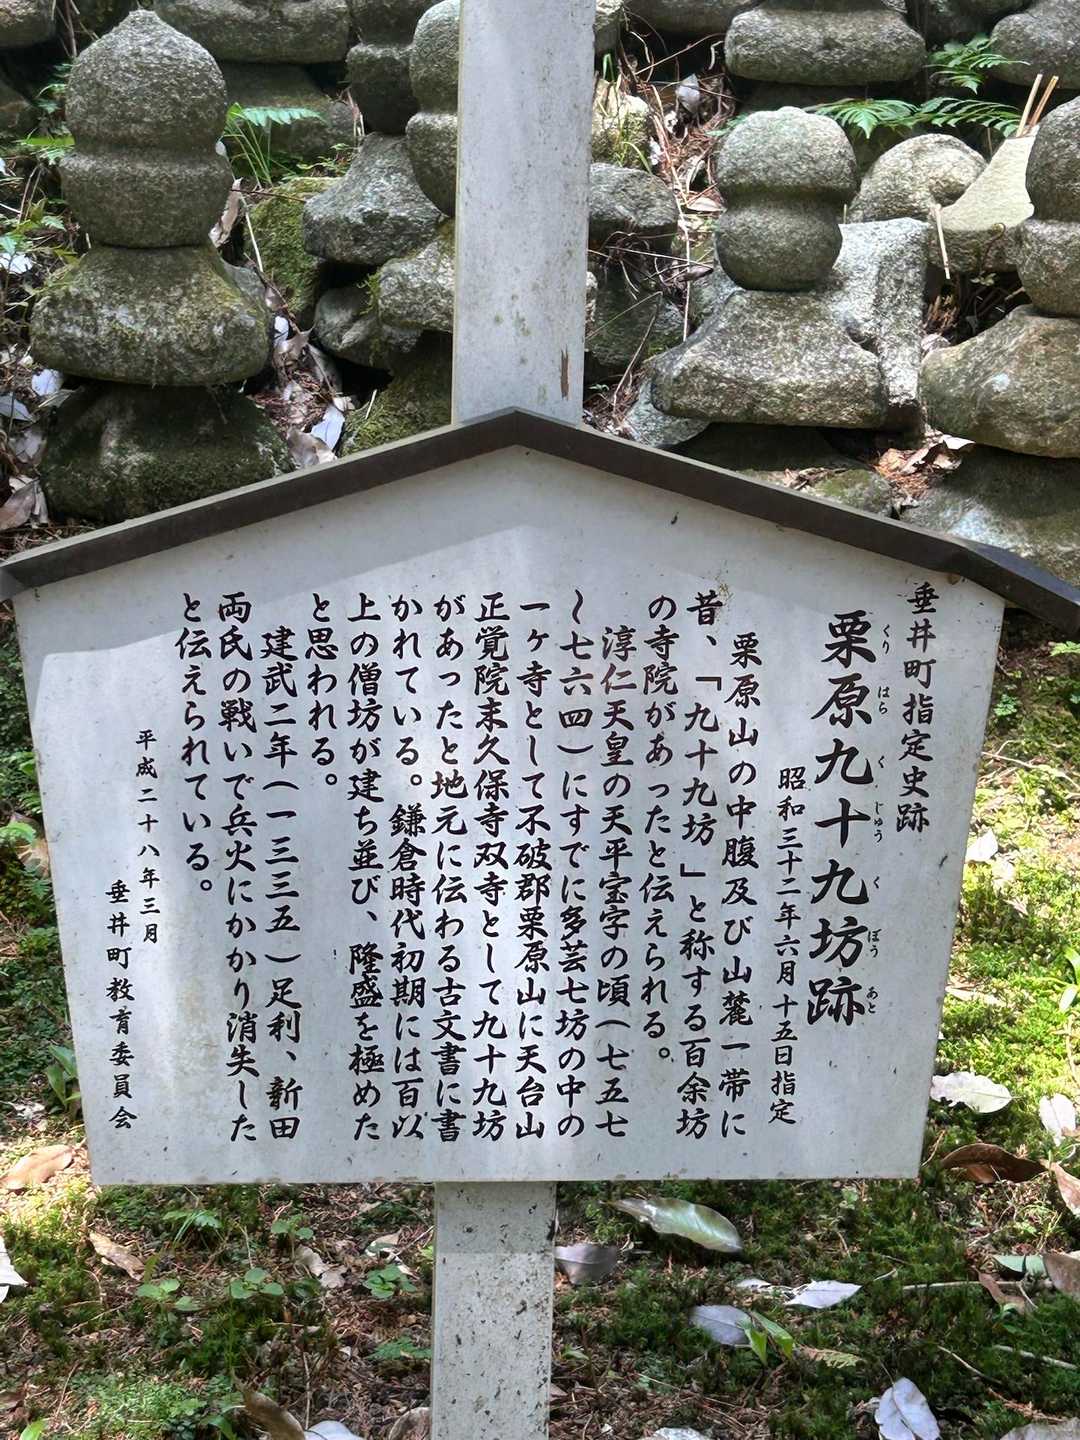 垂井町指定史跡
栗原九十九坊跡
くり はら く じゅう く ぼう あと
昭和三十二年六月十五日指定
栗原山の中腹及び山麓一帯に
昔、「九十九坊」と称する百余坊
の寺院があったと伝えられる。
淳仁天皇の天平宝字の頃(七五七
~七六四)にすでに多芸七坊の中の
一ヶ寺として不破郡栗原山に天台山
正覚院末久保寺双寺として九十九坊
があったと地元に伝わる古文書に書
かれている。鎌倉時代初期には百以
上の僧坊が建ち並び、隆盛を極めた
と思われる。
建武二年(一三三五)足利、新田
両氏の戦いで兵火にかかり消失した
と伝えられている。
平成二十八年三月
垂井町教育委員会